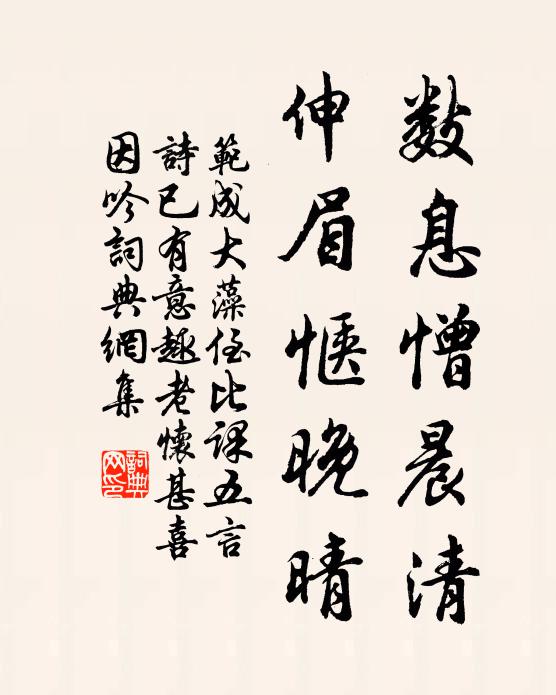 数息憎晨清
伸眉惬晚晴
範成大藻侄比课五言
詩已有意趣老懷甚喜
因吟詞典網集
詞典
网印